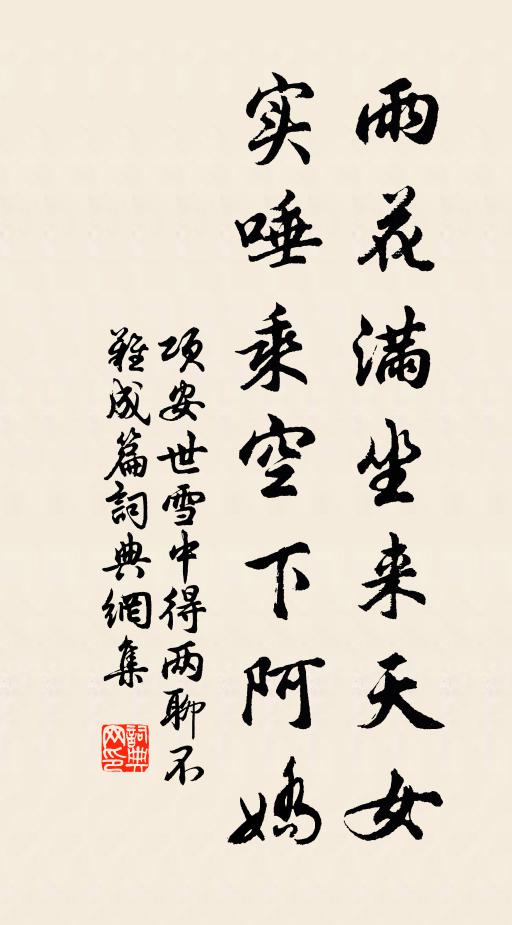 雨花满坐来天女
实唾乘空下阿娇
项安世雪中得两聊不
难成篇词典網集
詞典网印